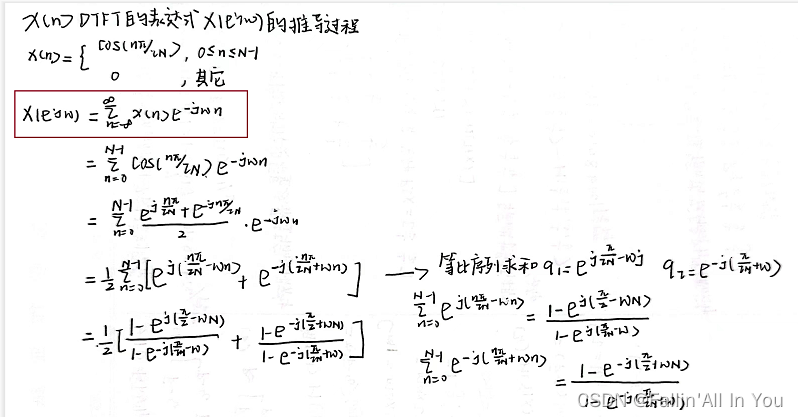 x(n) DTFT的表达式 X(e^jw)的推导过程
x(n) = { cos(nπ/2N), 0≤n≤N-1
0 , 其它
X(e^jw) = ∑_{n=-∞}^{∞} x(n) e^{-jwn}
= ∑_{n=0}^{N-1} cos(nπ/2N) e^{-jwn}
= ∑_{n=0}^{N-1} (e^{j nπ/2N} + e^{-j nπ/2N})/2 · e^{-jwn}
= 1/2 ∑_{n=0}^{N-1} [e^{j(nπ/2N - wn)} + e^{-j(nπ/2N + wn)}] → 等比序列求和 q₁ = e^{j π/2N - wj} q₂ = e^{-j(π/2N + w)}
= 1/2 [(1 - e^{j(π/2 - wN)})/(1 - e^{-j(π/2N - w)}) + (1 - e^{-j(π/2 + wN)})/(1 - e^{-j(π/2N + w)})]
∑_{n=0}^{N-1} e^{j(nπ/2N - wn)} = (1 - e^{j(π/2 - wN)})/(1 - e^{j(π/2N - w)})
∑_{n=0}^{N-1} e^{-j(nπ/2N + wn)} = (1 - e^{-j(π/2 + wN)})/(1 - e^{-j(π/2N + w)})
CSDN @Fallin'All In You